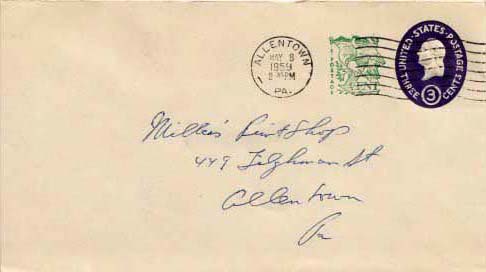 ALLENTOWN
MAY 8
1959
PM
PA.
POSTAGE
UNITED·STATES·POSTAGE
THREE 3 CENTS
Millie's Shop
449 Tilghman St
Allentown
Pa